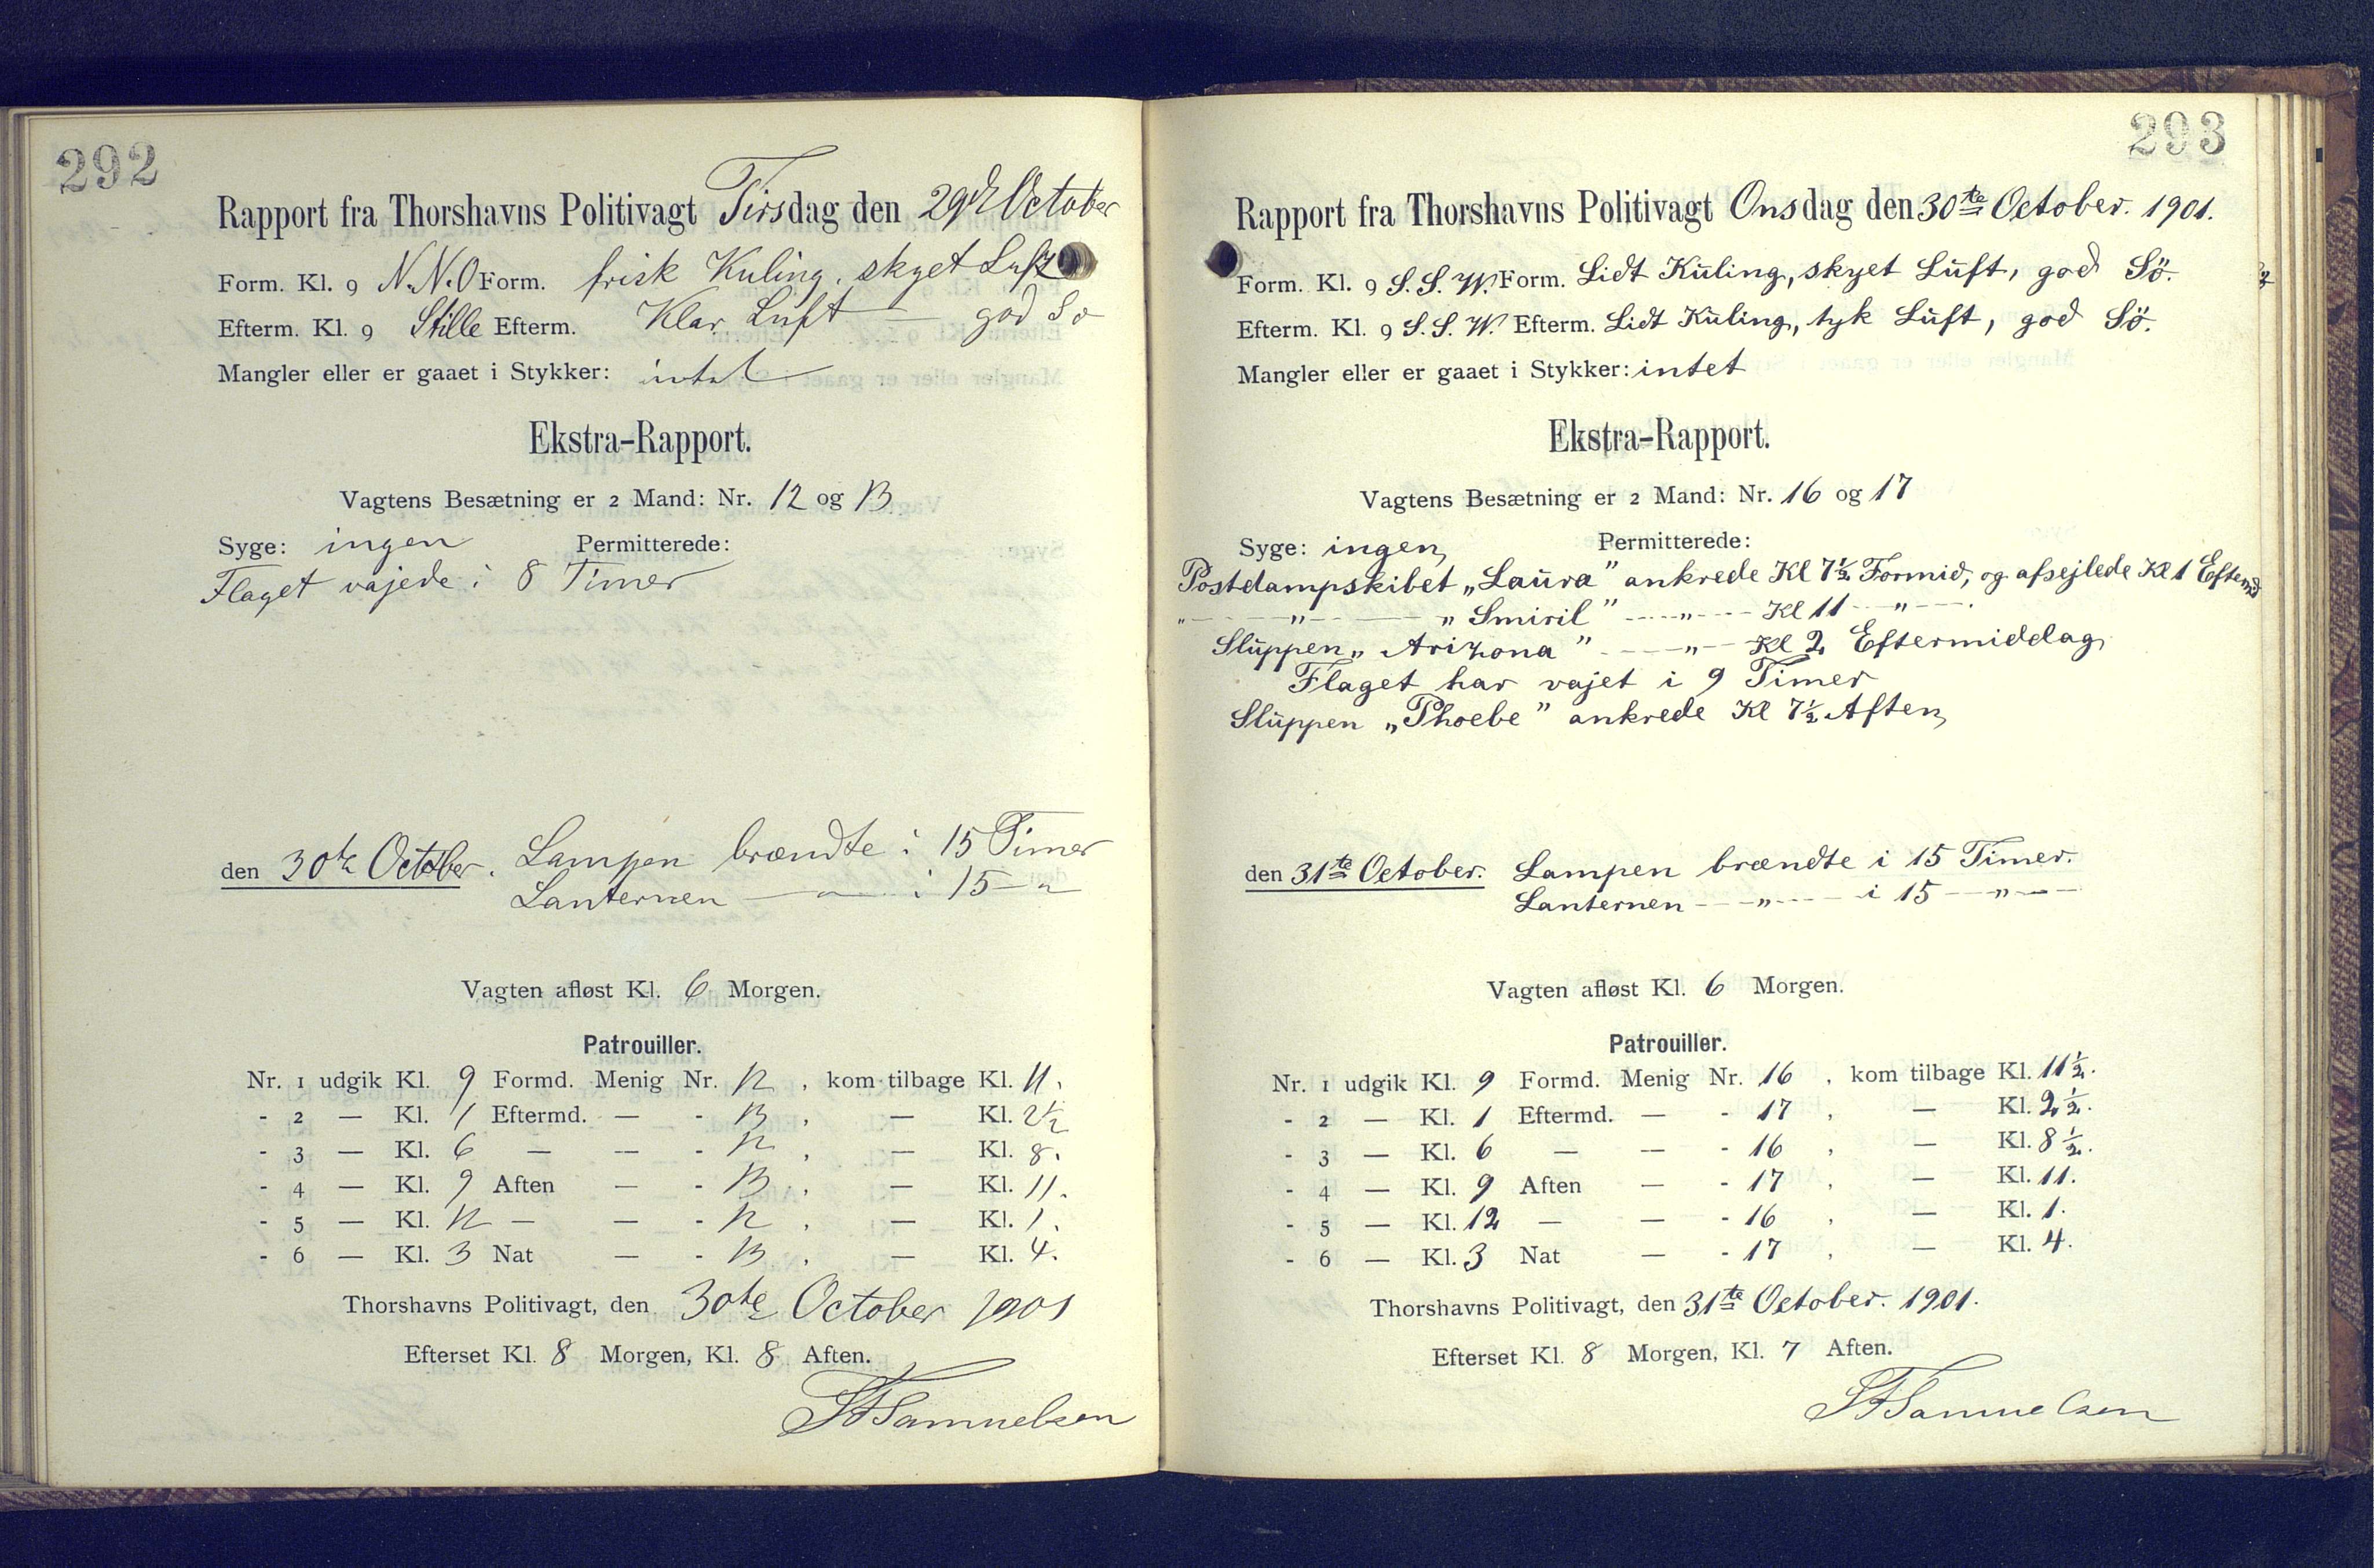 292
Rapport fra Thorshavns Politivagt Tirsdag den 29de October
Form. Kl. 9 N.N.O Form. frisk Kuling. skyet Luft
Efterm. Kl. 9 Stille Efterm. Klar Luft — god Sø
Mangler eller er gaaet i Stykker: intet
Ekstra-Rapport.
Vagtens Besætning er 2 Mand: Nr. 12 og 13
Syge: ingen Permitterede:
Flaget vajede i 8 Timer
den 30te October. Lampen brændte i 15 Timer
Lanternen — " — i 15 — "
Vagten afløst Kl. 6 Morgen.
Patrouiller.
Nr. 1 udgik Kl. 9 Formd. Menig Nr. 12, kom tilbage Kl. 11.
- 2 — Kl. 1 Eftermd. — - 13, — Kl. 2½
- 3 — Kl. 6 — — - 12, — Kl. 8.
- 4 — Kl. 9 Aften — - 13, — Kl. 11.
- 5 — Kl. 12 — — - 12, — Kl. 1.
- 6 — Kl. 3 Nat — - 13, — Kl. 4.
Thorshavns Politivagt, den 30te October 1901
Efterset Kl. 8 Morgen, Kl. 8 Aften.
Samuelsen
293
Rapport fra Thorshavns Politivagt Onsdag den 30te October. 1901.
Form. Kl. 9 S.S.W. Form. Lidt Kŭling, skyet Lŭft, god Sö.
Efterm. Kl. 9 S.S.W. Efterm. Lidt Kŭling, tyk Lŭft, god Sö.
Mangler eller er gaaet i Stykker: intet
Ekstra-Rapport.
Vagtens Besætning er 2 Mand: Nr. 16 og 17
Syge: ingen, Permitterede:
Postdampskibet „Laŭra" ankrede Kl 7½ Formid, og afsejlede Kl 1 Eftermd
" — " — „Smiril" — " — Kl 11 — " —.
Slŭppen „Arizona" — " — Kl 2 Eftermiddag,
Flaget har vajet i 9 Timer
Slŭppen „Phoebe" ankrede Kl 7½ Aften,
den 31te October. Lampen brændte i 15 Timer.
Lanternen — " — i 15 — " —
Vagten afløst Kl. 6 Morgen.
Patrouiller.
Nr. 1 udgik Kl. 9 Formd. Menig Nr. 16, kom tilbage Kl. 11½.
- 2 — Kl. 1 Eftermd. — - 17, — Kl. 2½.
- 3 — Kl. 6 — — - 16, — Kl. 8½.
- 4 — Kl. 9 Aften — - 17, — Kl. 11.
- 5 — Kl. 12 — — - 16, — Kl. 1.
- 6 — Kl. 3 Nat — - 17, — Kl. 4.
Thorshavns Politivagt, den 31te October. 1901.
Efterset Kl. 8 Morgen, Kl. 7 Aften.
Samuelsen